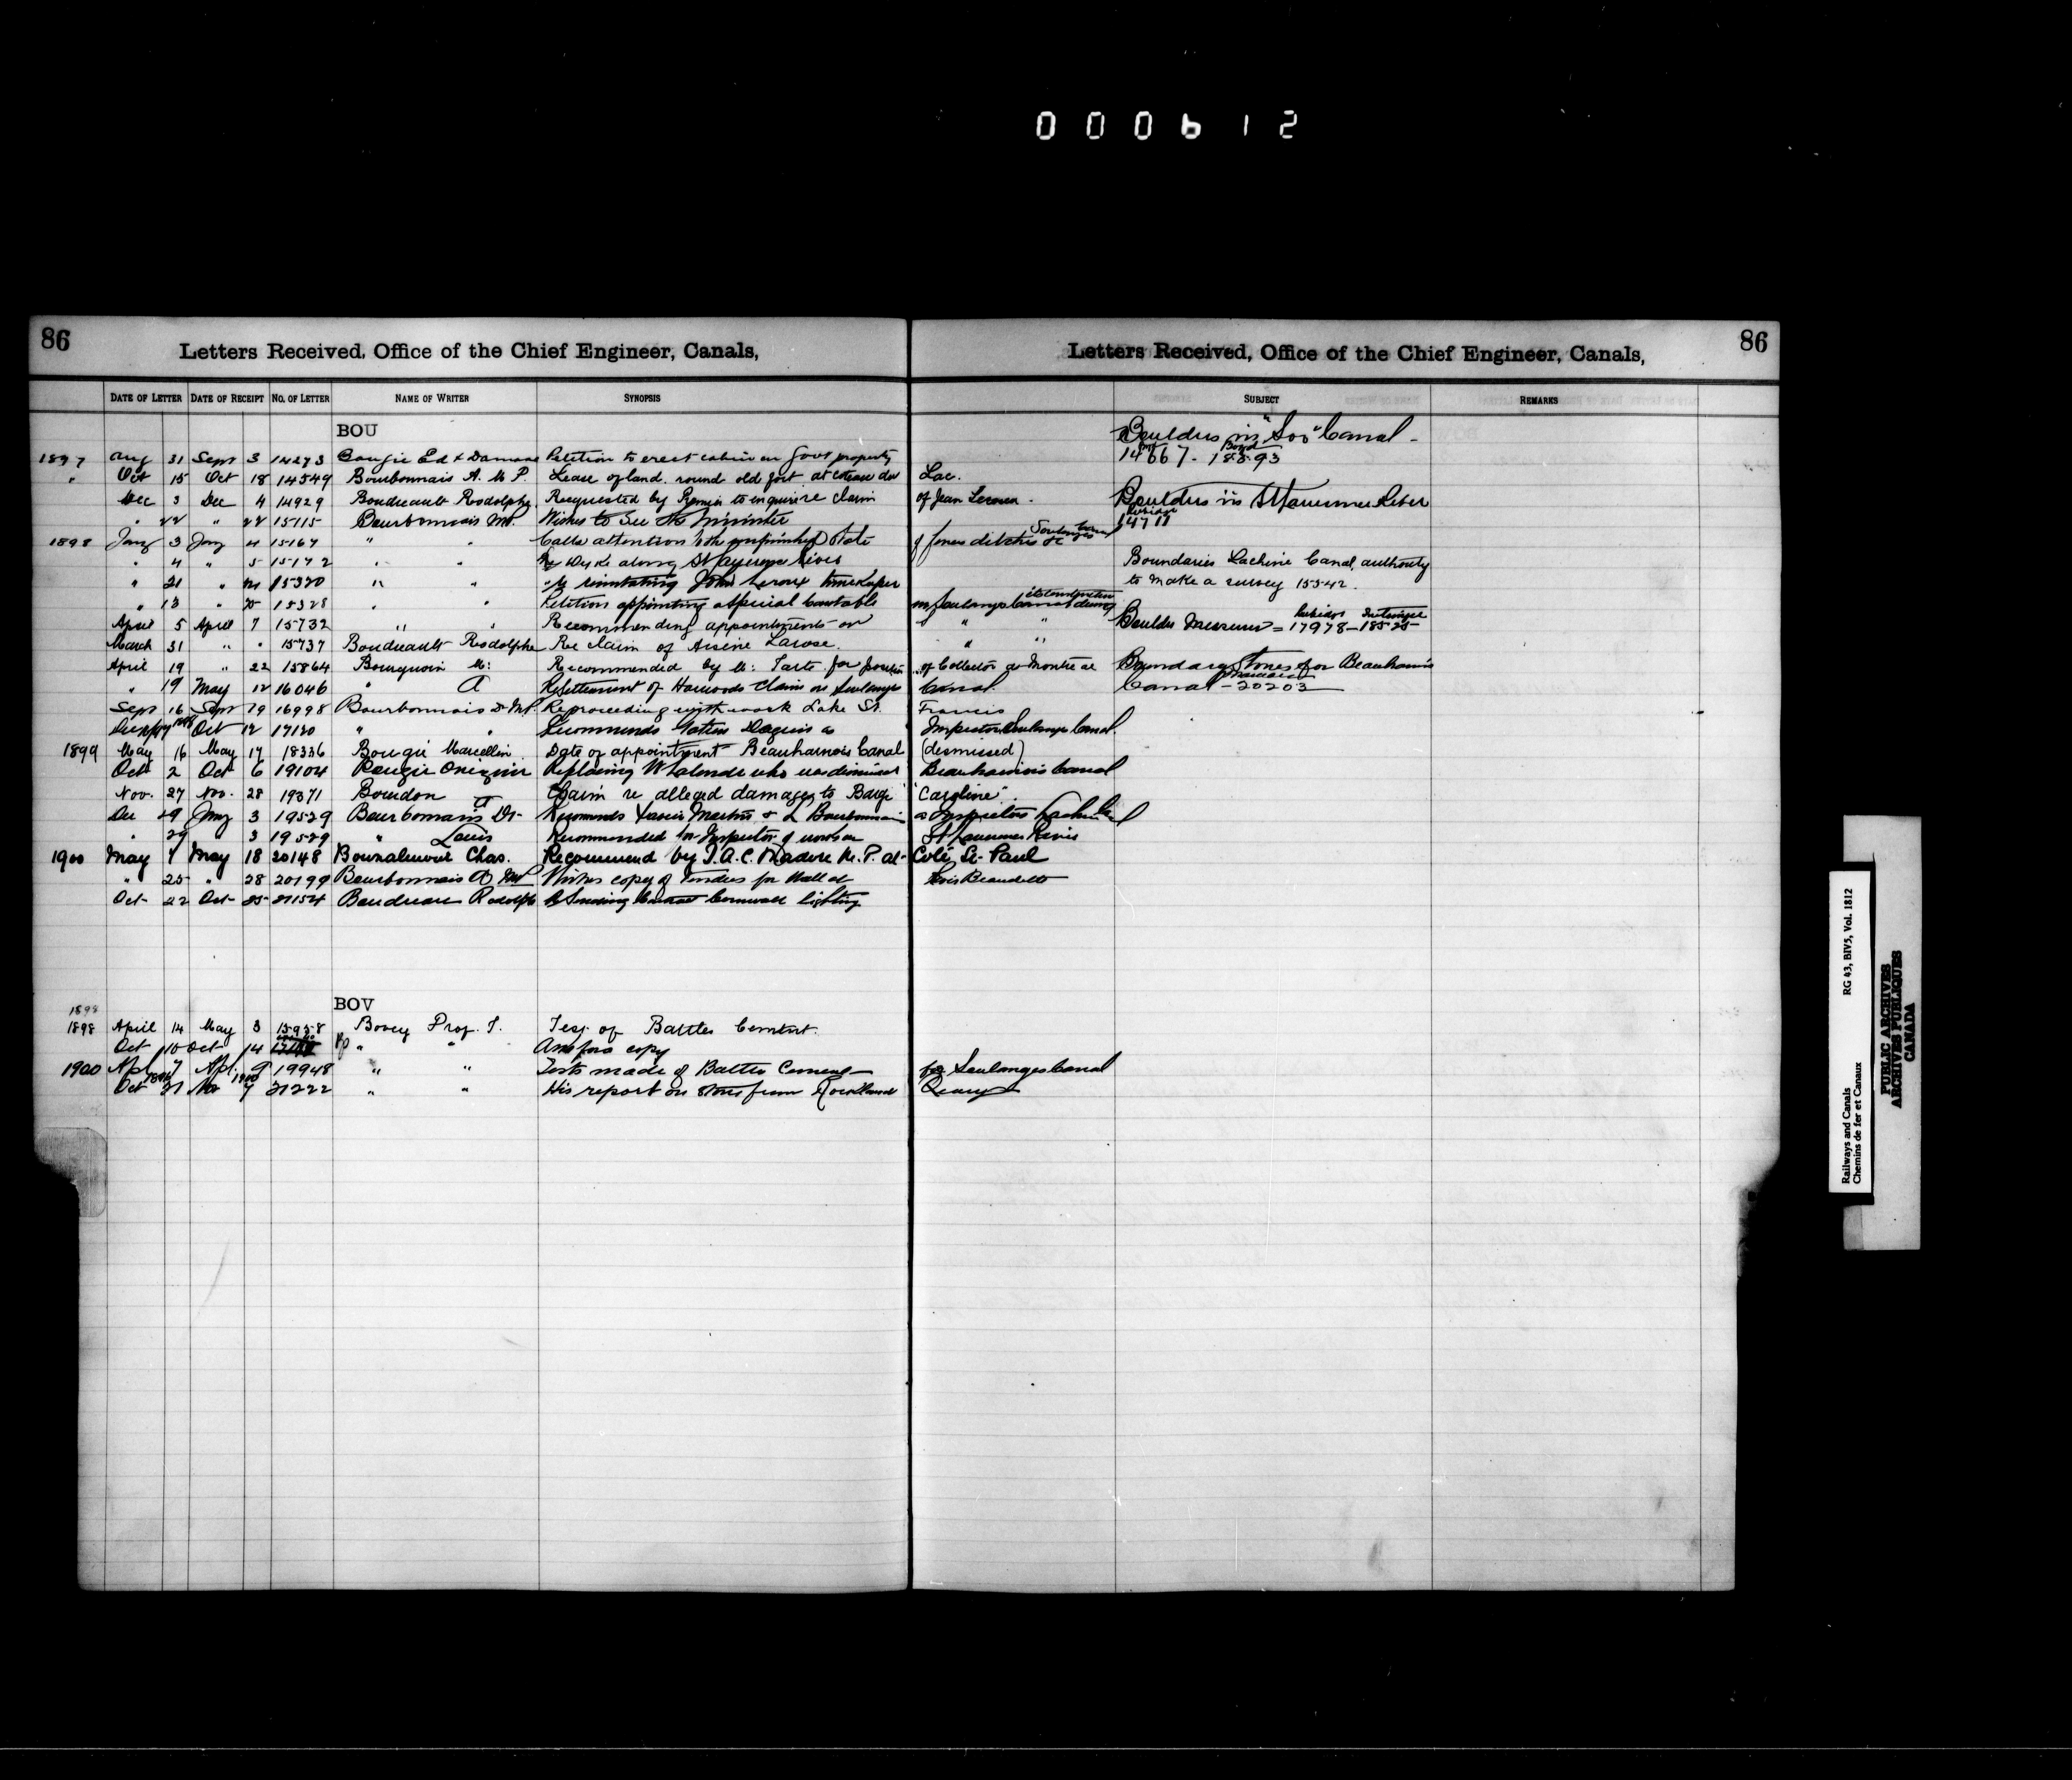 000612
86
Letters Received, Office of the Chief Engineer, Canals,
Letters Received, Office of the Chief Engineer, Canals,
86
DATE OF LETTER DATE OF RECEIPT NO. OF LETTER NAME OF WRITER SYNOPSIS
SUBJECT REMARKS
BOU
Boulders in "Soo" Canal -
14667 - 18893
1897 Aug 31 Sept 3 14273 Bougie Ed & Damase Petition to erect cabin on Govt property
" Oct 15 Oct 18 14549 Bourbonnais A. M P. Lease of land round old fort at coteau du Lac.
Dec 3 Dec 4 14929 Boudreault Rodolphe Requested by to enquire re claim of Jean
Boulders in St Lawrence River
14711
" 22 " 22 15115 Bourbonnais MP. Wishes to see the Minister
1898 Jany 3 Jany 4 15167 " " Calls attention to the unfinished state of fences ditches &c Soulanges Canal
" 4 " 5 15172 " " Re Dyke along St Lawrence River
Boundaries Lachine Canal, authority
to make a survey 15542.
" 21 " 24 15320 " " Re reinstating John Leroux timekeeper
" 13 " 25 15328 " " Petition appointing a special Constable on Soulanges Canal during its construction
April 5 April 7 15732 " " Recommending appointments on " "
Boulder Measurer = 17978 - 18525
March 31 " " 15737 Boudreault Rodolphe Re claim of Arsene Larose. " "
April 19 " 22 15864 Bourgouin M: Recommended by M: Tarte for position of Collector at Montreal
Boundary Stones for Beauharnois
Canal - 20203
" 19 May 12 16046 " A Resettlement of Harwoods claim on Soulanges Canal.
Sept 16 Sept 19 16998 Bourbonnais A MP. Re proceeding with work Lake St. Francis
1898 Oct 12 17120 " " Recommends as Inspector Soulanges Canal.
1899 May 16 May 17 18336 Bougie Marcellin Date of appointment Beauharnois Canal (dismissed)
Oct 2 Oct 6 19104 Bougie Replacing W Lalonde who was dismissed Beauharnois Canal
Nov. 27 Nov. 28 19371 Bourdon Claim re alleged damages to Barge "Caroline".
Dec 29 Jany 3 19529 Bourbonnais A Dr. Recommends & L Bourbonnais as Inspectors
" 29 " 3 19529 " Louis Recommended for Inspector of works on St Lawrence River
1900 May 7 May 18 20148 Chas. Recommend by J.A.C. Madore M.P. at Coté St Paul
" 25 " 28 20199 Bourbonnais A MP Wishes copy of Tenders for Wall at
Oct 22 Oct 25 21154 Boudreau Rodolphe Re Contract Cornwall lighting
BOV
1898
1898 April 14 May 3 15958 Bovey Prof. T. Test of Battles Cement.
Oct 10 Oct 14 " " Asks for a copy
1900 Apl 7 Apl. 9 19948 " " Tests made of Battles Cement for Soulanges Canal
Oct 21 Nov 7 21222 " " His report on stone from Rockland Quarry
Railways and Canals RG 43, BIV5, Vol. 1812
Chemins de fer et Canaux
PUBLIC ARCHIVES
ARCHIVES PUBLIQUES
CANADA